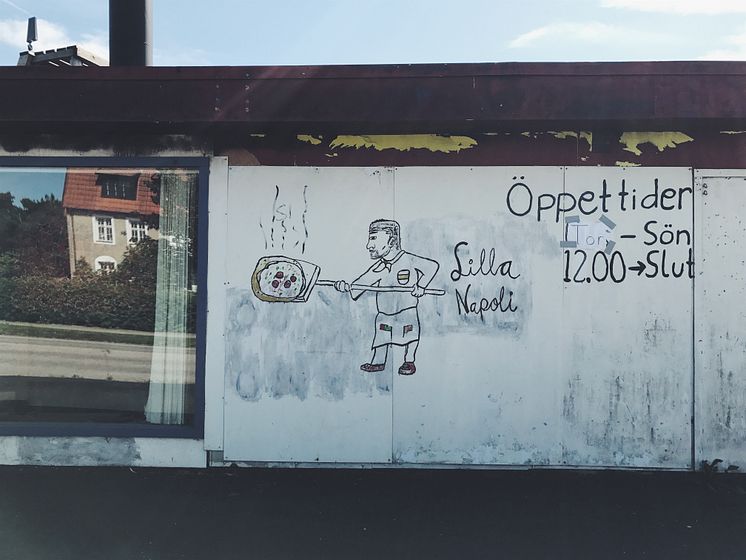 Lilla
Napoli
Öppettider
Tor – Sön
12.00→Slut